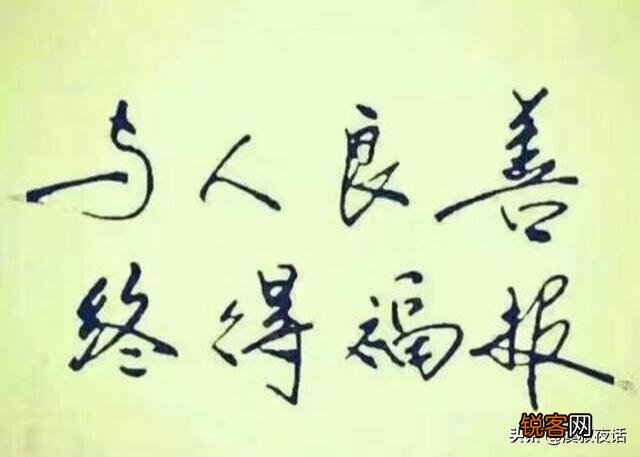 与人良善
终得福报
锐客网
头条 @溪叔夜话